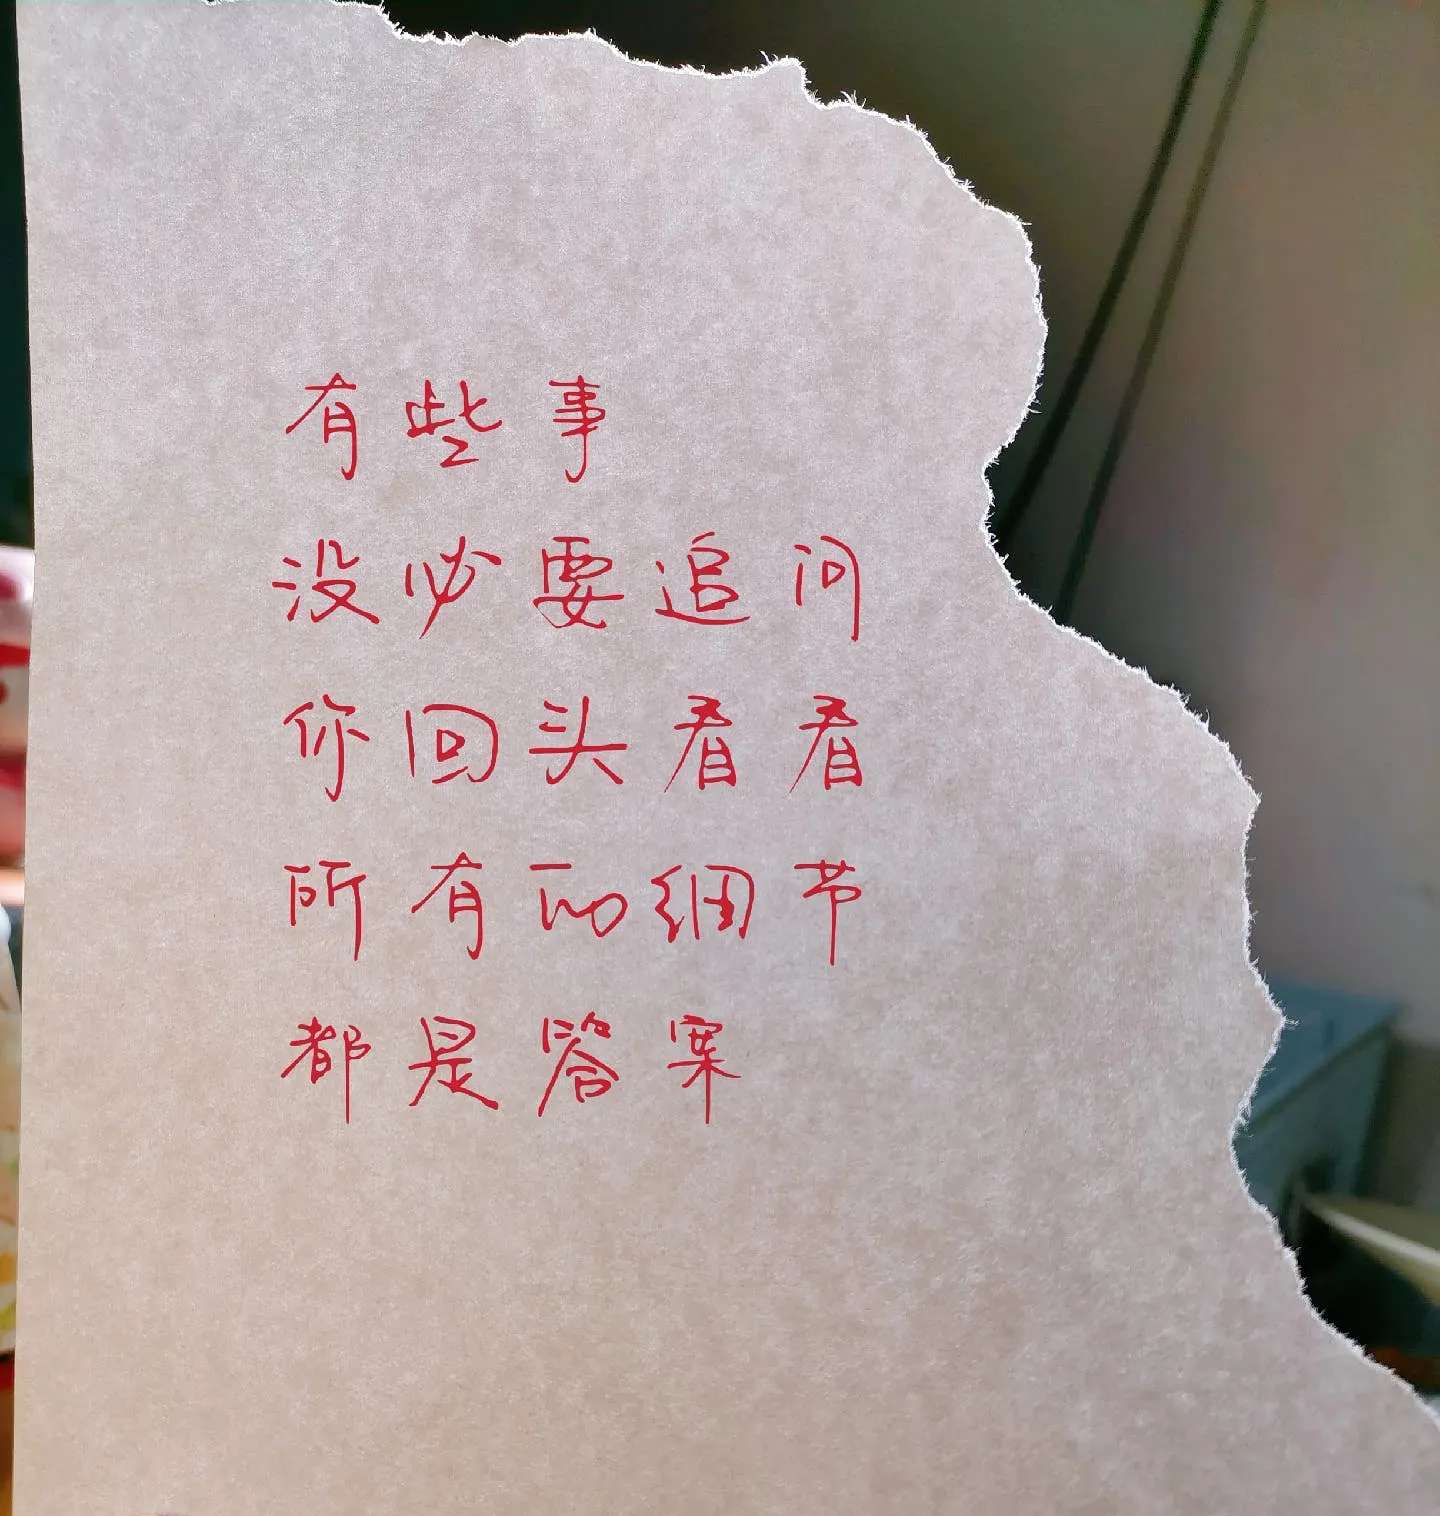 有些事
没必要追问
你回头看看
所有的细节
都是答案